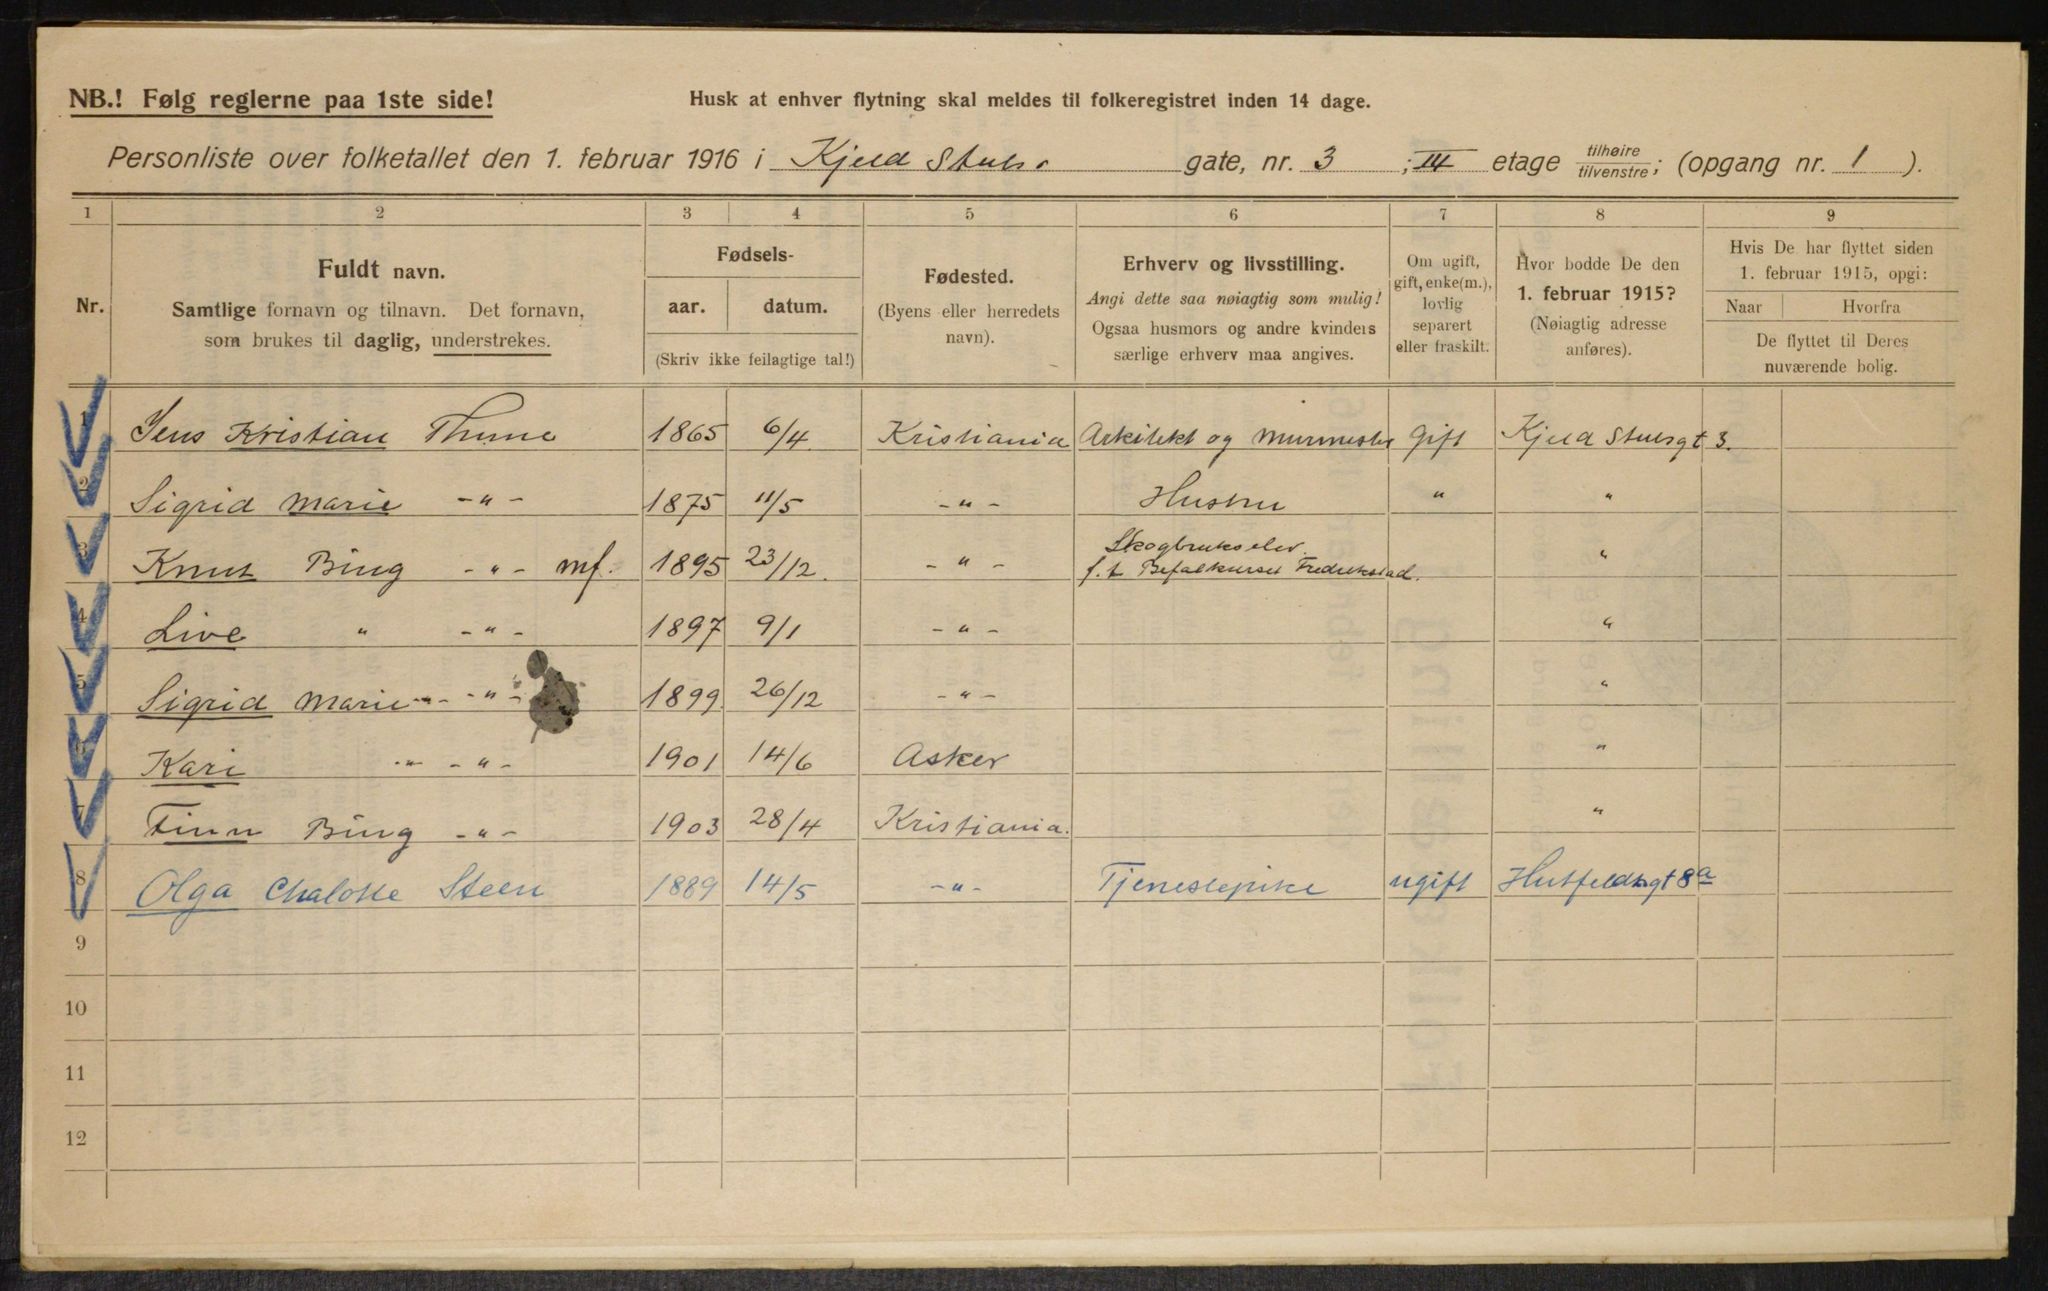 NB.! Følg reglerne paa 1ste side!
Husk at enhver flytning skal meldes til folkeregistret inden 14 dage.
Personliste over folketallet den 1. februar 1916 i Kjeld Stubs. gate, nr. 3 ; III etage tilhøire tilvenstre; (opgang nr. 1 ).
1 2 3 4 5 6 7 8 9
Nr.
Fuldt navn.
Samtlige fornavn og tilnavn. Det fornavn,
som brukes til daglig, understrekes.
Fødsels-
aar. datum.
(Skriv ikke feilagtige tal!)
Fødested.
(Byens eller herredets
navn).
Erhverv og livsstilling.
Angi dette saa nøiagtig som mulig!
Ogsaa husmors og andre kvinders
særlige erhverv maa angives.
Om ugift,
gift, enke(m.),
lovlig
separert
eller fraskilt.
Hvor bodde De den
1. februar 1915?
(Nøiagtig adresse
anføres).
Hvis De har flyttet siden
1. februar 1915, opgi:
Naar Hvorfra
De flyttet til Deres
nuværende bolig.
1 Jens Kristian Thime 1865 6/4. Kristiania Arkitekt og Murmester gift Kjeld Stubsgt 3.
2 Sigrid Marie -"- 1875 11/5 -"- Hustru " "
3 Knut Bing -"- mf. 1895 23/12. -"- Skogbrukselev. "
f.t Befalkurset Fredrikstad.
4 Live " -"- 1897 9/1 -"- "
5 Sigrid Marie -"- -"- 1899 26/12 -"- "
6 Kari -"- -"- 1901 14/6 Asker "
7 Finn Bing -"- 1903 28/4 Kristiania. "
8 Olga Chalotte Steen 1889 14/5 -"- Tjenestepike ugift Huitfeldtsgt 8a
9
10
11
12